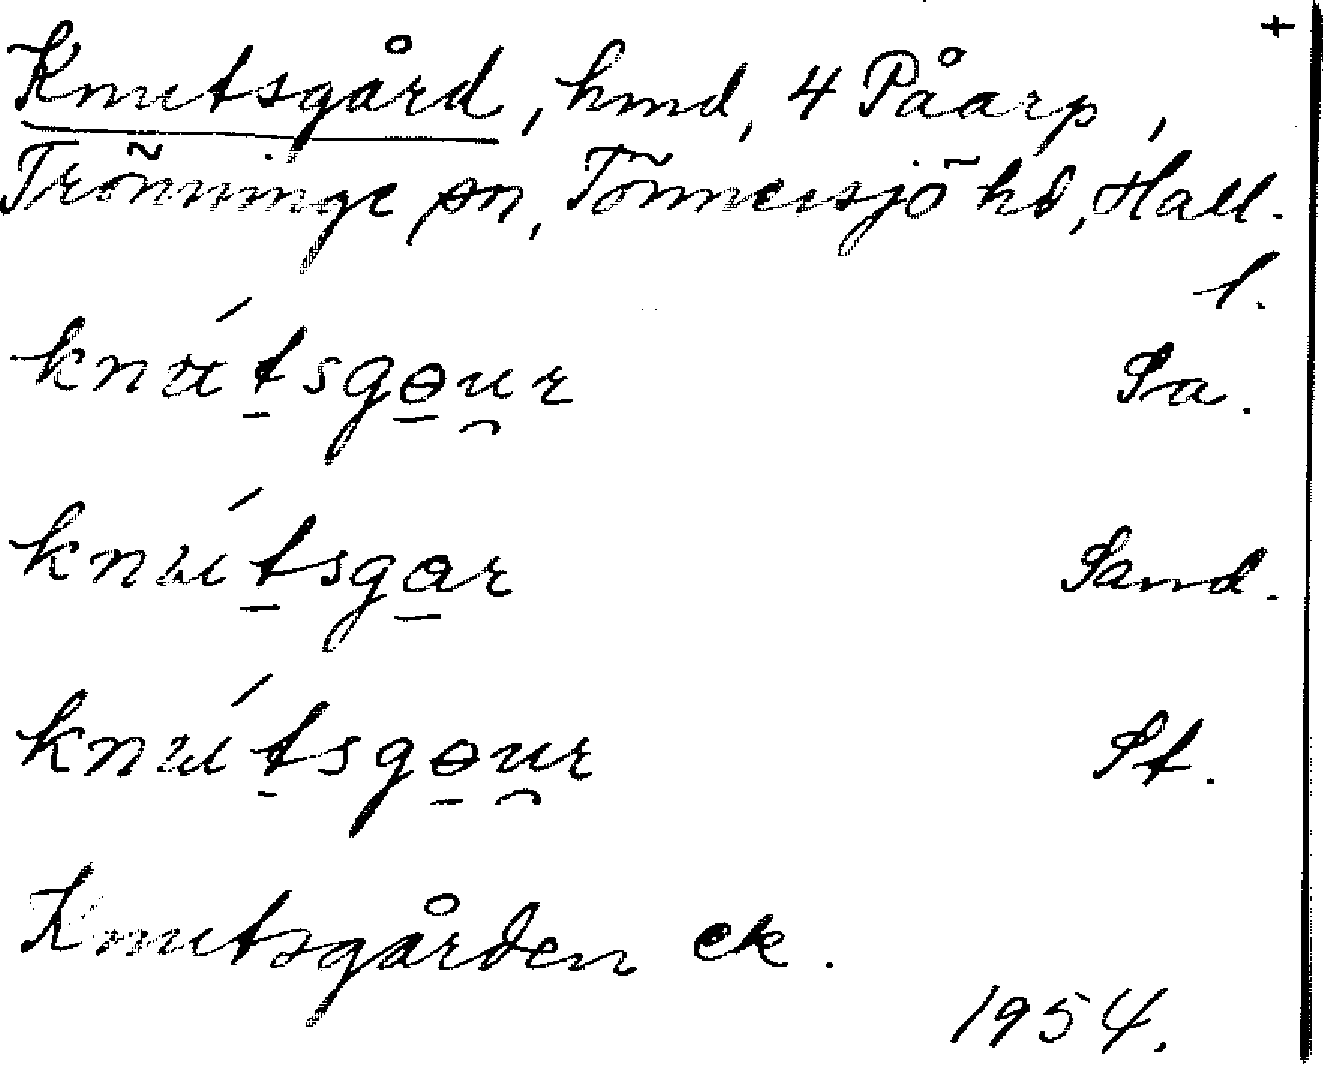 +
Knutsgård, hmd, 4 Påarp,
Trönninge sn, Tönnersjö hd, Hall.
l.
knʉ́tsgɵu̯r Sa.
knʉ́tsgar Sand.
knʉ́tsgɵu̯r St.
Knutsgården ek.
1954.